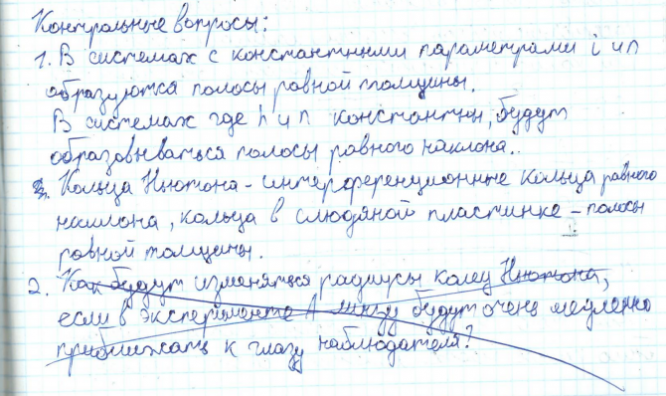 Контрольные вопросы:
1. В системах с константными параметрами i и n
образуются полосы равной толщины.
В системах где h и n константны, будут
образовываться полосы равного наклона..
Кольца Ньютона - интерференционные кольца равного
наклона, кольца в слюдяной пластинке - полосы
равной толщины.
2. Как будут изменяться радиусы колец Ньютона,
если в эксперименте А линзу будут очень медленно
приближать к глазу наблюдателя?